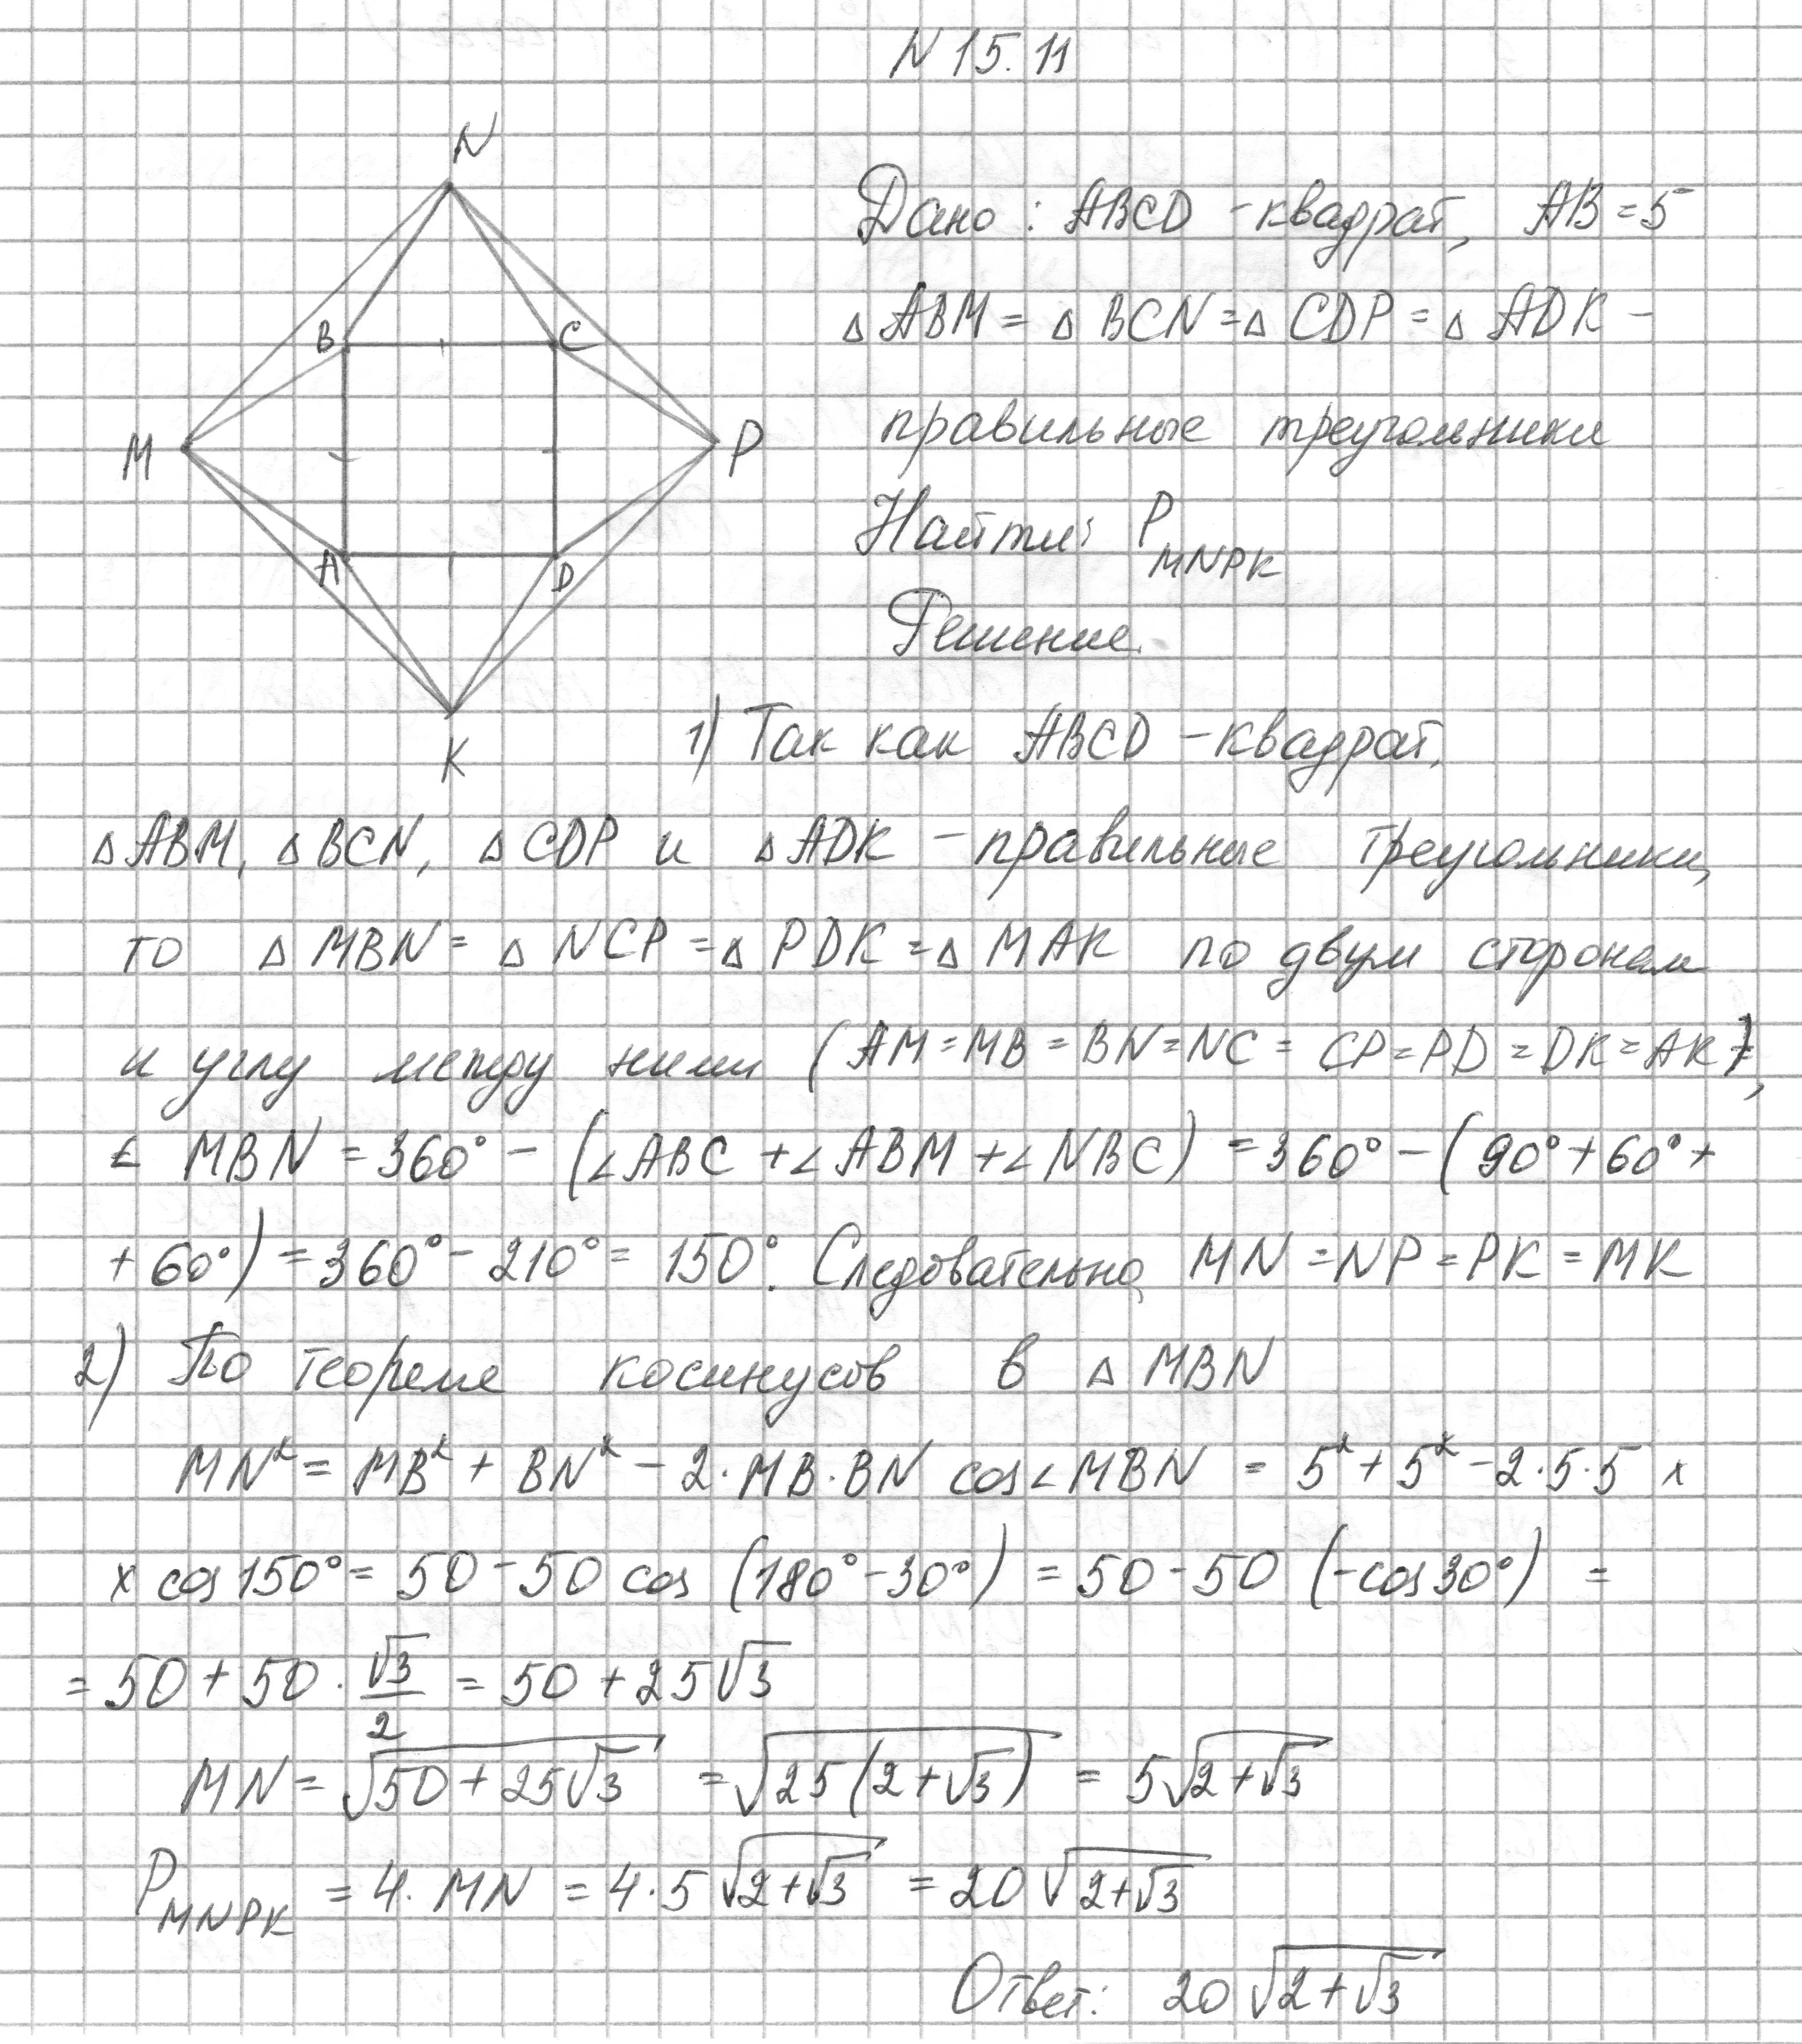 N 15.11
N
Дано: ABCD - квадрат, AB = 5
B
C
△ ABM = △ BCN = △ CDP = △ ADK -
M
P
правильные треугольники
Найти: P MNPK
A
D
Решение.
K
1) Так как ABCD - квадрат,
△ ABM, △ BCN, △ CDP и △ ADK - правильные треугольники,
то △ MBN = △ NCP = △ PDK = △ MAK по двум сторонам
и углу между ними (AM = MB = BN = NC = CP = PD = DK = AK),
∠ MBN = 360° - (∠ ABC + ∠ ABM + ∠ NBC) = 360° - (90° + 60° +
+ 60°) = 360° - 210° = 150°. Следовательно, MN = NP = PK = MK
2) По теореме косинусов в △ MBN
MN² = MB² + BN² - 2·MB·BN cos∠MBN = 5² + 5² - 2·5·5 ×
× cos 150° = 50 - 50 cos (180° - 30°) = 50 - 50 (-cos 30°) =
= 50 + 50 · √3/2 = 50 + 25√3
MN = √(50 + 25√3) = √(25(2 + √3)) = 5√(2 + √3)
P MNPK = 4· MN = 4·5√(2+√3) = 20√(2+√3)
Ответ: 20√(2+√3)